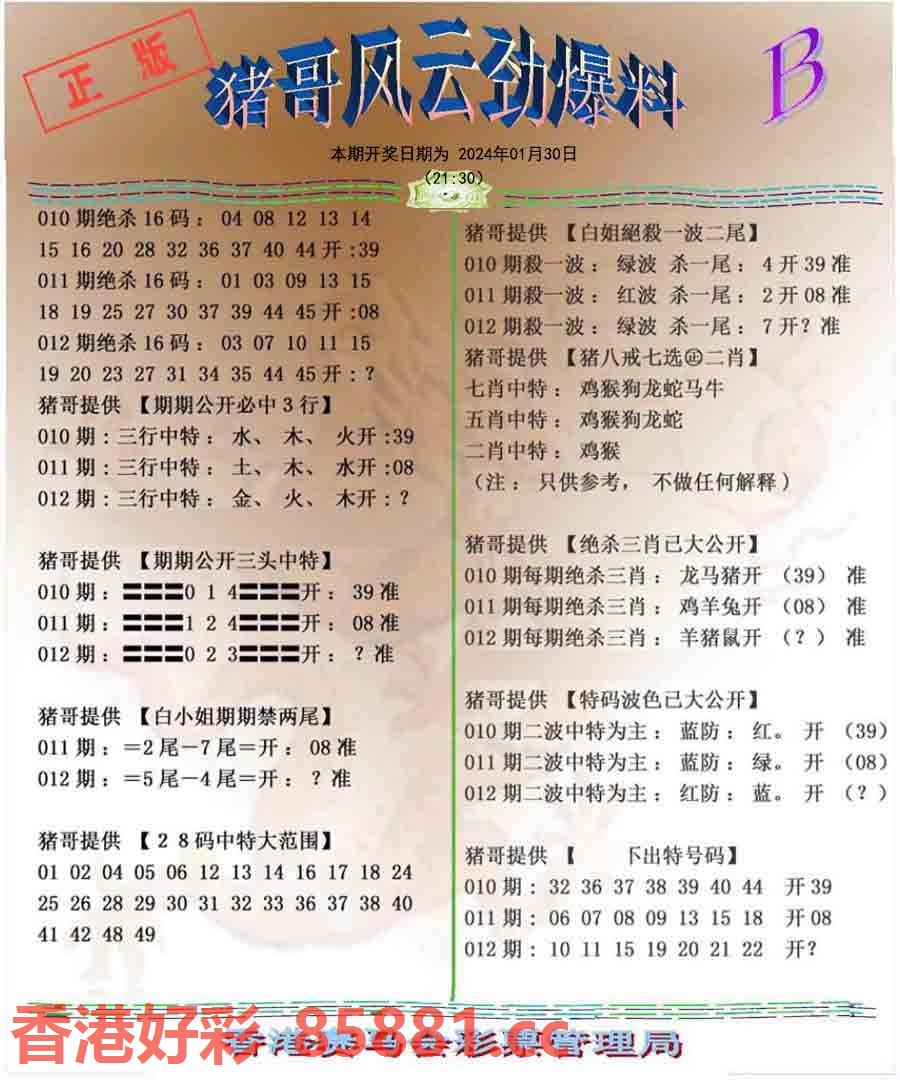 正版
猪哥风云劲爆料
B
本期开奖日期为 2024年01月30日
(21:30)
010期绝杀16码： 04 08 12 13 14
15 16 20 28 32 36 37 40 44开:39
011期绝杀16码： 01 03 09 13 15
18 19 25 27 30 37 39 44 45开:08
012期绝杀16码： 03 07 10 11 15
19 20 23 27 31 34 35 44 45开：？
猪哥提供 【期期公开必中3行】
010期：三行中特： 水、 木、 火开:39
011期：三行中特： 土、 木、 水开:08
012期：三行中特： 金、 火、 木开：？
猪哥提供 【期期公开三头中特】
010期：〓〓〓0 1 4〓〓〓开： 39准
011期：〓〓〓1 2 4〓〓〓开： 08准
012期：〓〓〓0 2 3〓〓〓开：？准
猪哥提供 【白小姐期期禁两尾】
011期：＝2尾－7尾＝开： 08准
012期：＝5尾－4尾＝开：？准
猪哥提供 【２８码中特大范围】
01 02 04 05 06 12 13 14 16 17 18 24
25 26 28 29 30 31 32 33 36 37 38 40
41 42 48 49
猪哥提供 【白姐絕殺一波二尾】
010期殺一波： 绿波 杀一尾： 4开39准
011期殺一波： 红波 杀一尾： 2开08准
012期殺一波： 绿波 杀一尾： 7开？准
猪哥提供 【猪八戒七选㊣二肖】
七肖中特： 鸡猴狗龙蛇马牛
五肖中特： 鸡猴狗龙蛇
二肖中特： 鸡猴
（注： 只供参考， 不做任何解释）
猪哥提供 【绝杀三肖已大公开】
010期每期绝杀三肖： 龙马猪开 （39） 准
011期每期绝杀三肖： 鸡羊兔开 （08） 准
012期每期绝杀三肖： 羊猪鼠开 （？） 准
猪哥提供 【特码波色已大公开】
010期二波中特为主： 蓝防：红。 开 （39）
011期二波中特为主： 蓝防：绿。 开 （08）
012期二波中特为主： 红防：蓝。 开 （？）
猪哥提供 【 下出特号码】
010期: 32 36 37 38 39 40 44 开39
011期: 06 07 08 09 13 15 18 开08
012期: 10 11 15 19 20 21 22 开?
香港好彩 85881.cc
香港赛马会彩票管理局